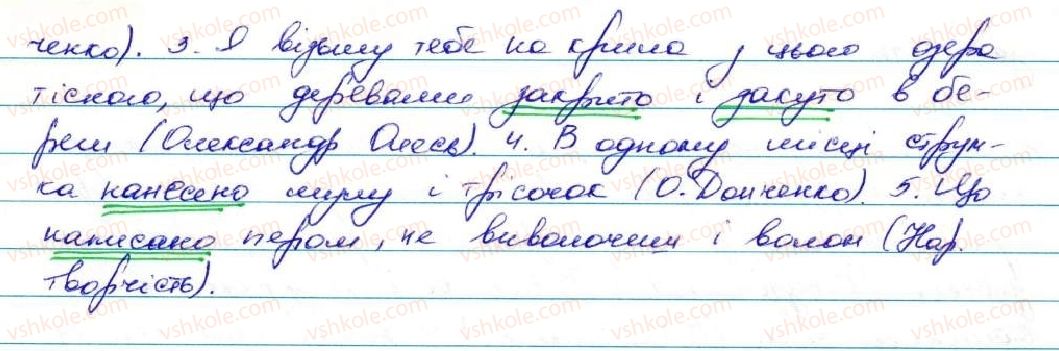 ченко). 3. Я візьму тебе на крила у цього озера
тісного, що деревами закрито і закуто в бе-
реги (Олександр Олесь). 4. В одному місці струм-
ка нанесено мулу і трісочок (О. Донченко). 5. Що
написано пером, не виволочиш і волом (Нар.
творчість).